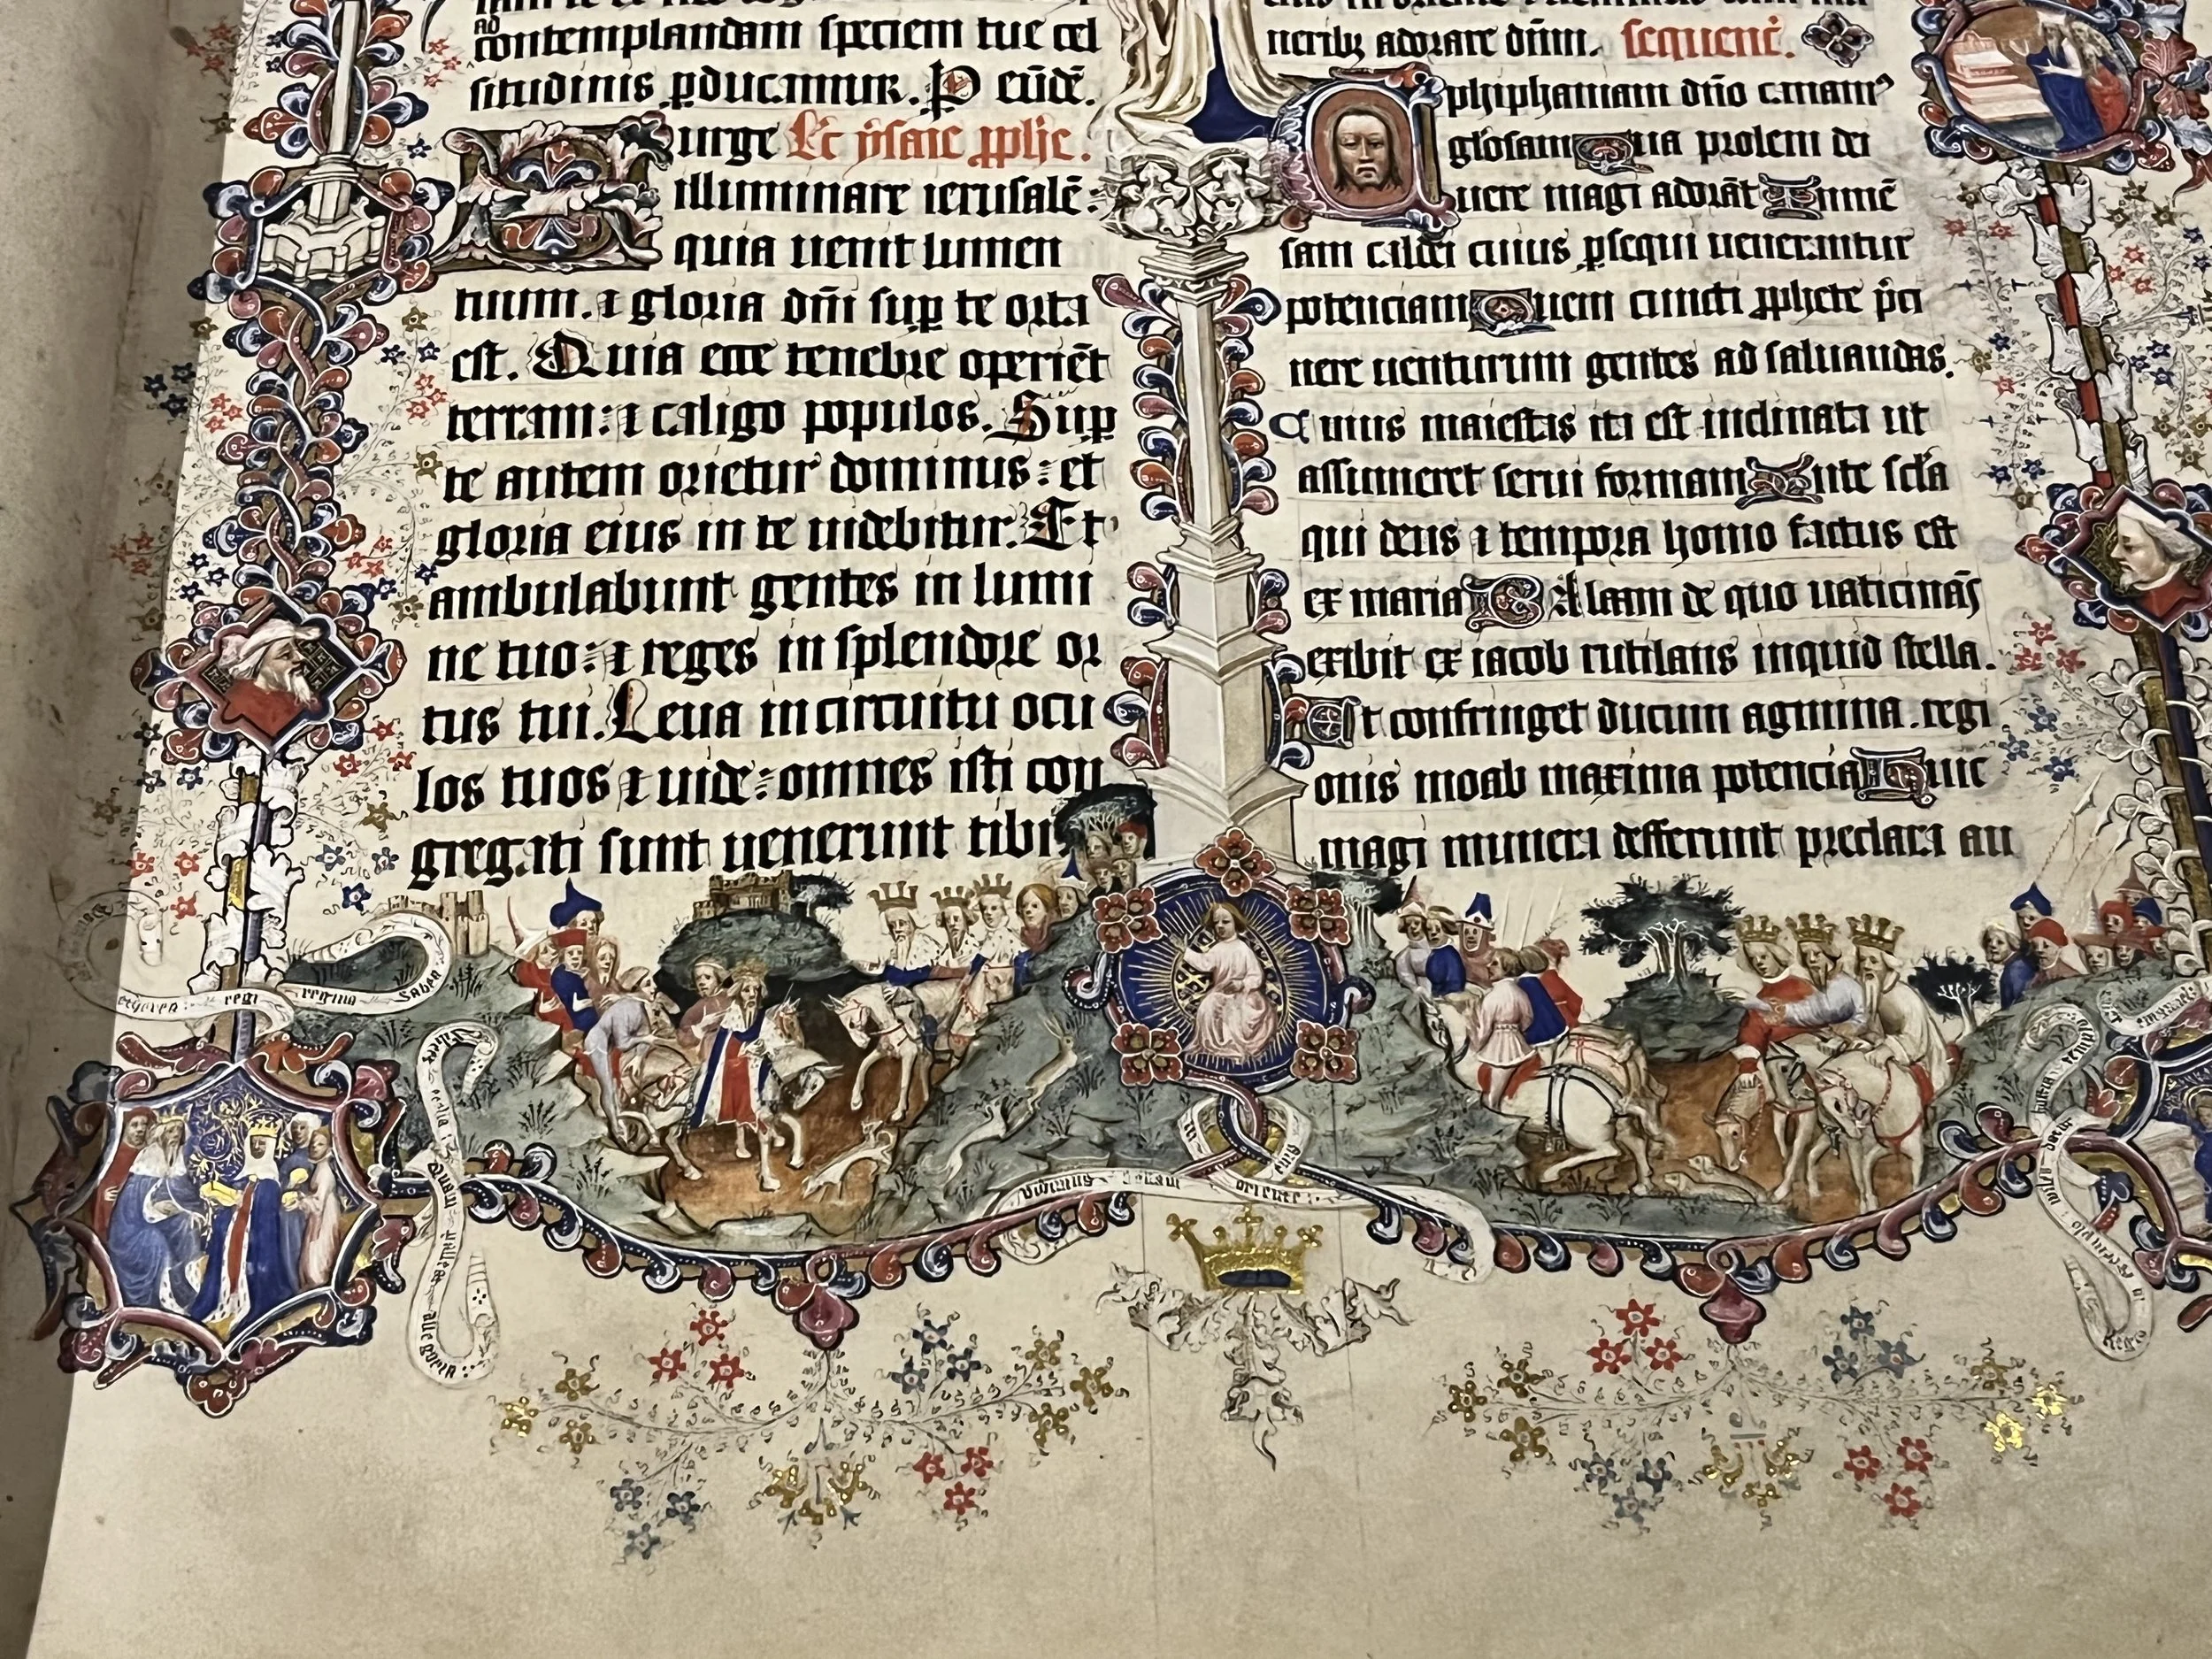 AD
contemplandam speciem tue cel
situdinis ꝑducamur. P eūdē.
urge Lc̄ ysaie ꝓph̄e.
illuminare ierusalē:
quia uenit lumen
tuum. ⁊ gloria dn̄i suꝑ te orta
est. Quia ecce tenebre operiēt
terram: ⁊ caligo populos. Suꝑ
te autem orietur dominus: et
gloria eius in te uidebitur. Et
ambulabunt gentes in lumi
ne tuo: ⁊ reges in splendore or
tus tui. Leua in circuitu ocu
los tuos ⁊ uide: omnes isti con
gregati sunt uenerunt tibi
neribꝫ adorare dn̄m. sequenc̄.
phiphaniam dn̄o canamꝰ
gl̄osam Qua prolem dei
uere magi adorāt Inmē
sam caldei cuius ꝑsequi uenerantur
potenciam Quem cuncti ꝓphete p̄ci
nere uenturum gentes ad saluandas.
Cuius maiestas ita est inclinata ut
assumeret serui formam Ante sc̄la
qui deus ⁊ tempora homo factus est
ex maria BAlaam de quo uaticinās
exibit ex iacob rutilans inquid stella.
Et confringet ducum agmina. regi
onis moab maxima potencia Huic
magi munera defferunt preclara au
regi regina saben
vidimus stellam
in oriente eius